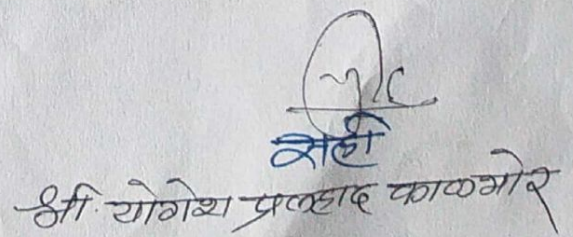 सही
श्री. योगेश प्रल्हाद काळभोर